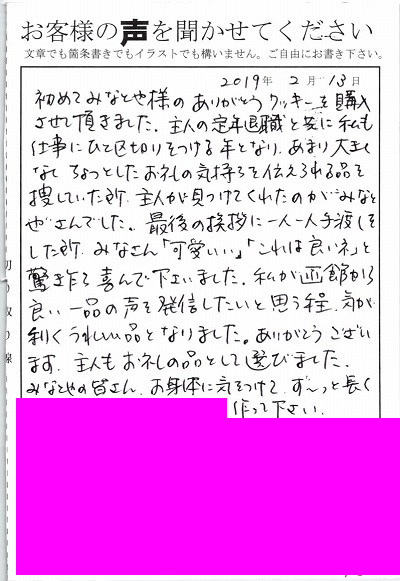 お客様の声を聞かせてください
文章でも箇条書きでもイラストでも構いません。ご自由にお書き下さい。
2019年 2月 13日
初めてみなとや様の ありがとうクッキーを購入
させて頂きました。主人の定年退職と共に私も
仕事にひと区切りをつける年となり、あまり大きく
なく ちょっとしたお礼の気持ちを伝えられる品を
捜していた所、主人が見つけてくれたのがみなと
やさんでした。最後の挨拶に一人一人手渡しを
した所、みなさん「可愛いい」「これは良いネ」と
驚き 喜んで下さいました。私が函館から
良い一品の声を発信したいと思う程、気が
利くうれしい品となりました。ありがとうござい
ます。主人もお礼の品として選びました。
みなとやの皆さん、お身体に気をつけて、ず〜っと長く
作って下さい。
切り取り線